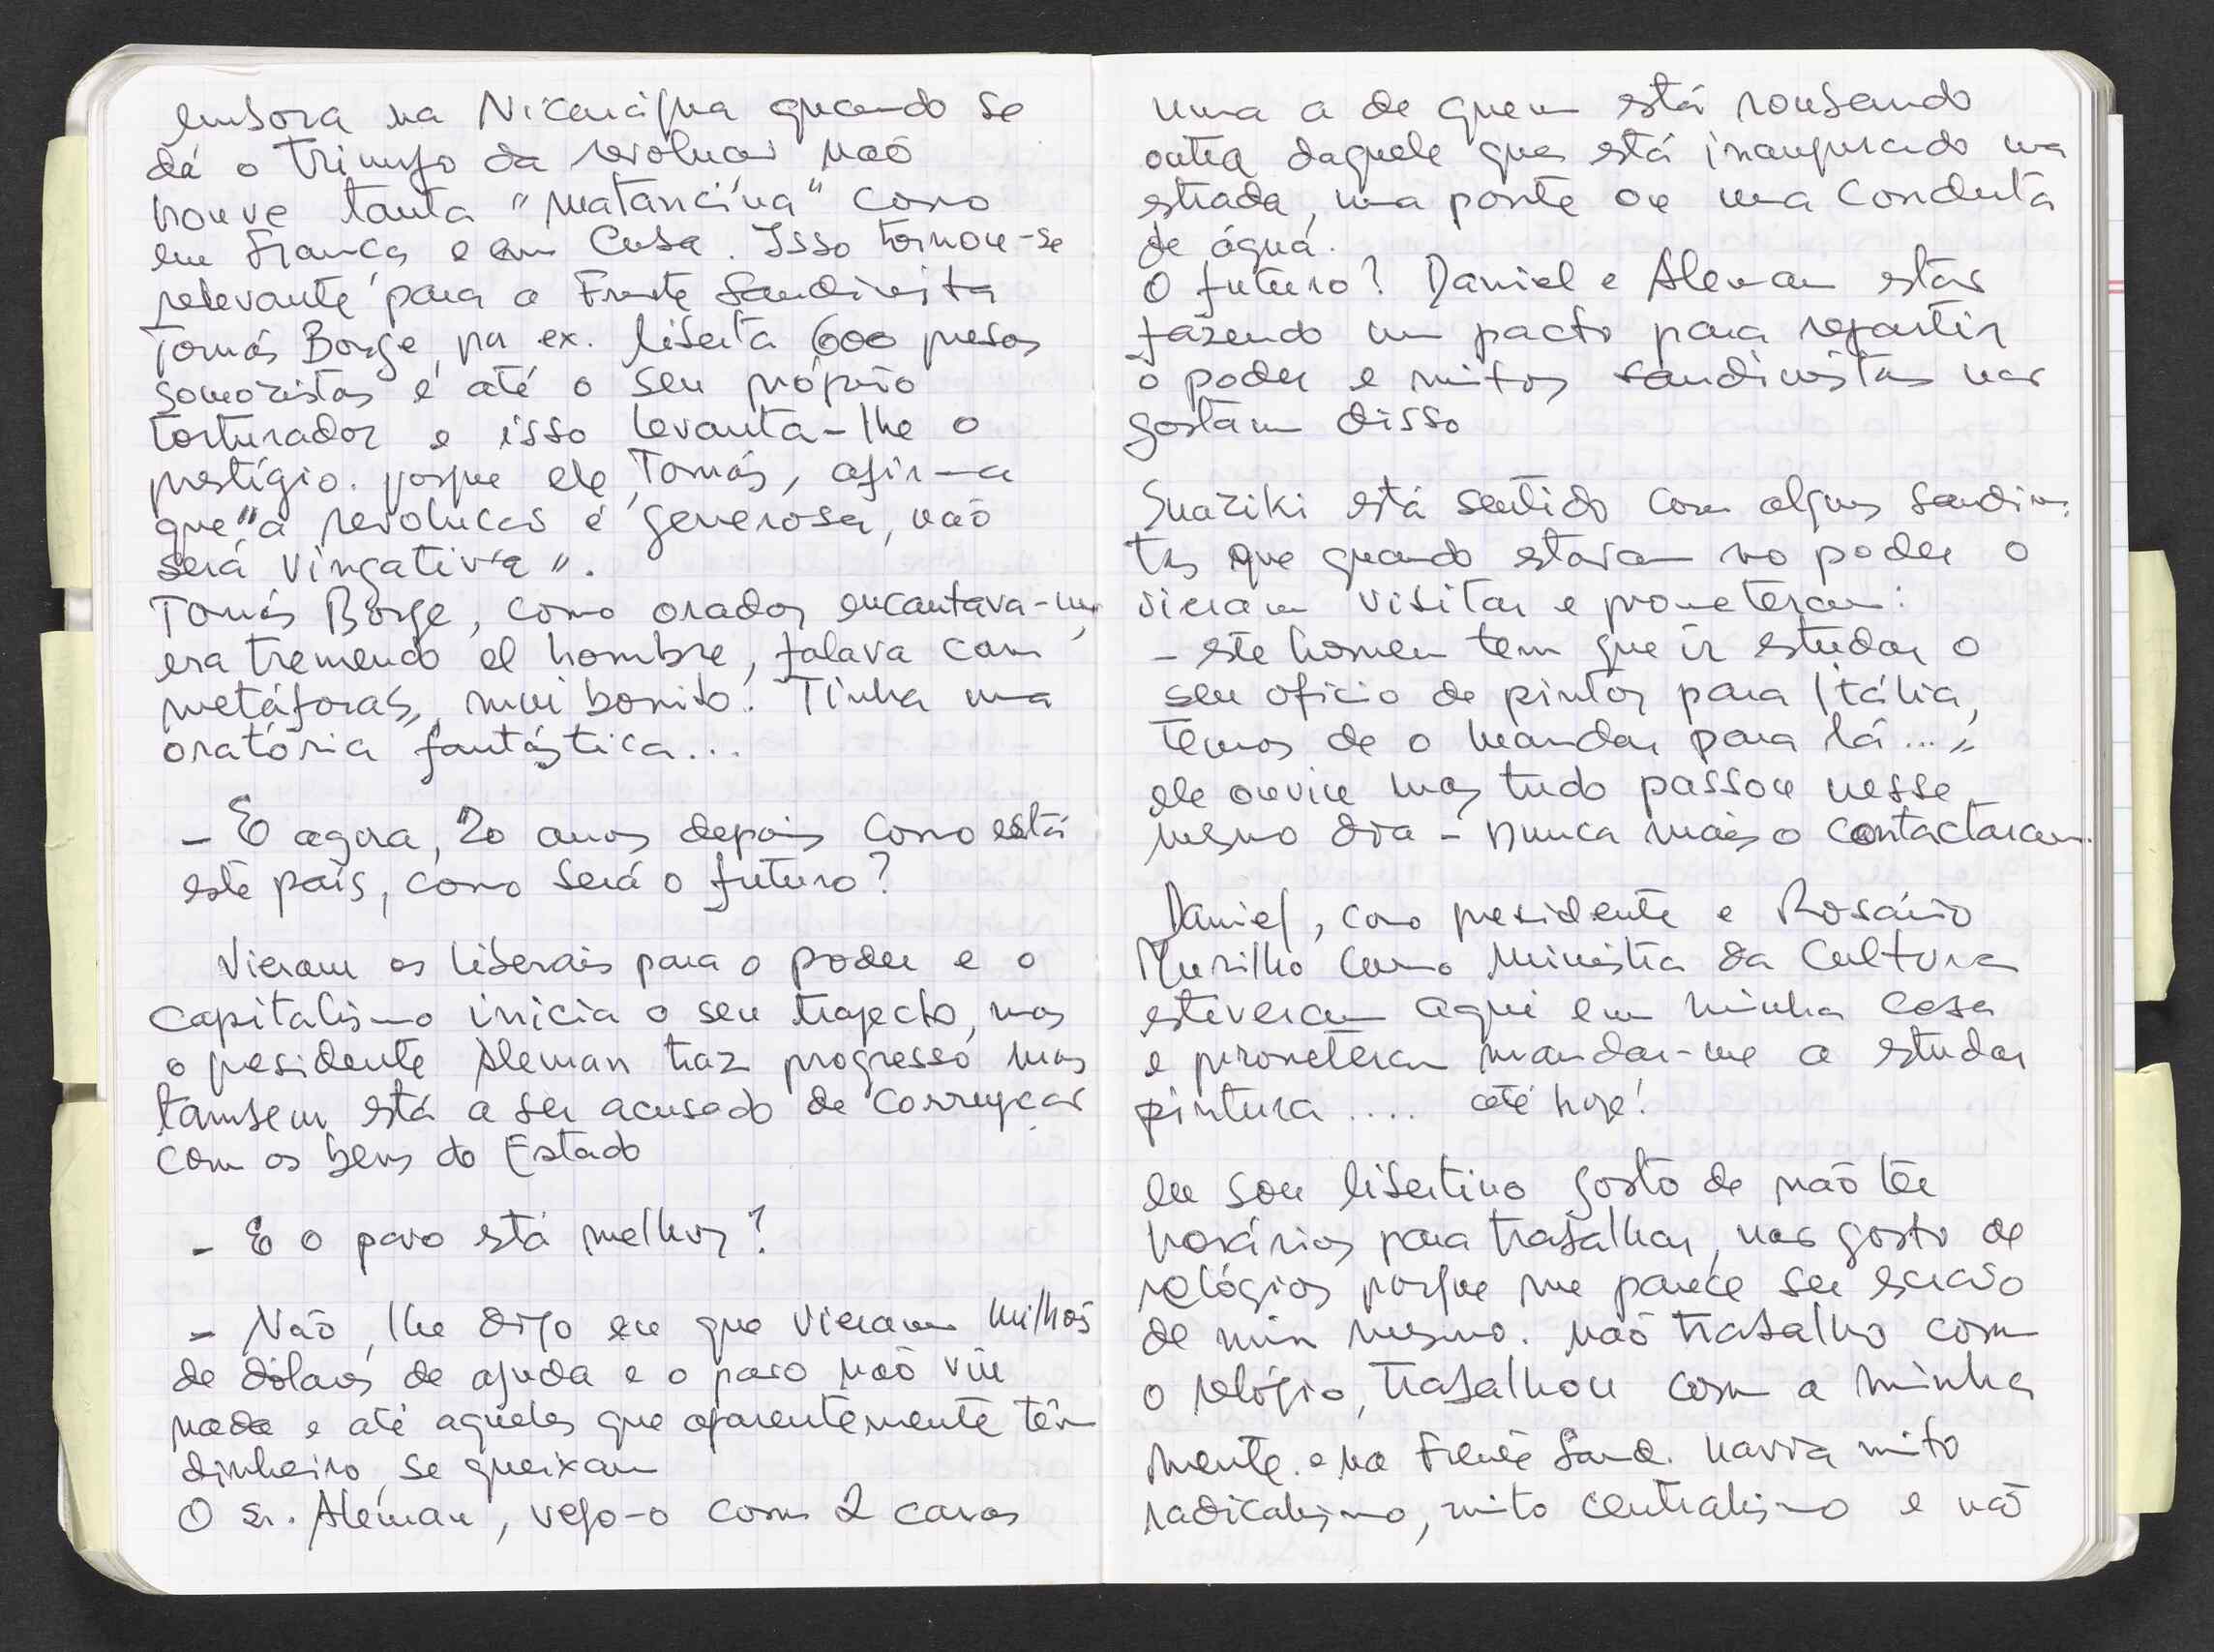 embora na Nicarágua quando se
dá o triunfo da revolucao não
houve tanta "matancina" como
em França e em Cuba. Isso tornou-se
relevante para a Frente Sandinista
Tomás Borge, por ex. liberta 600 presos
somozistas e até o seu próprio
torturador e isso levanta-lhe o
prestígio. porque ele, Tomás, afirma
que "a revolucao é generosa, não
será vingativa".
Tomás Borge, como orador encantava-me,
era tremendo el hombre, falava com
metáforas, mui bonito! Tinha uma
oratória fantástica...
- E agora, 20 anos depois como está
este país, como será o futuro?
Vieram os liberais para o poder e o
capitalismo inicia o seu trajecto, mas
o presidente Aleman traz progresso mas
tambem está a ser acusado de corrupçao
com os bens do Estado
- E o povo está melhor?
- Não, lhe digo eu que vieram milhões
de dólares de ajuda e o povo não viu
nada e até aqueles que aparentemente têm
dinheiro, se queixam
O Sr. Aleman, vejo-o com 2 caras
uma a de quem está roubando
outra daquele que está inaugurado uma
estrada, uma ponte ou uma conduta
de água.
O futuro? Daniel e Aleman estao
fazendo um pacto para repartir
o poder e muitos sandinistas nao
gostam disso
Suaziki está sentido com alguns sandinis
tas que quando estavam no poder o
vieram visitar e prometeram:
- este homem tem que ir estudar o
seu oficio de pintor para Itália,
temos de o mandar para lá..."
ele ouviu mas tudo passou nesse
mesmo dia - nunca mais o contactaram.
Daniel, como presidente e Rosário
Murilho como Ministra da Cultura
estiveram aqui em minha casa
e prometeram mandar-me a estudar
pintura .... até hoje!
eu sou libertino gosto de não ter
horários para trabalhar, nao gosto de
relógios porque me parece ser escravo
de mim mesmo. não trabalho com
o relógio, trabalhou com a minha
mente. e na Frente Sand. havia muito
radicalismo, muito centralismo e não